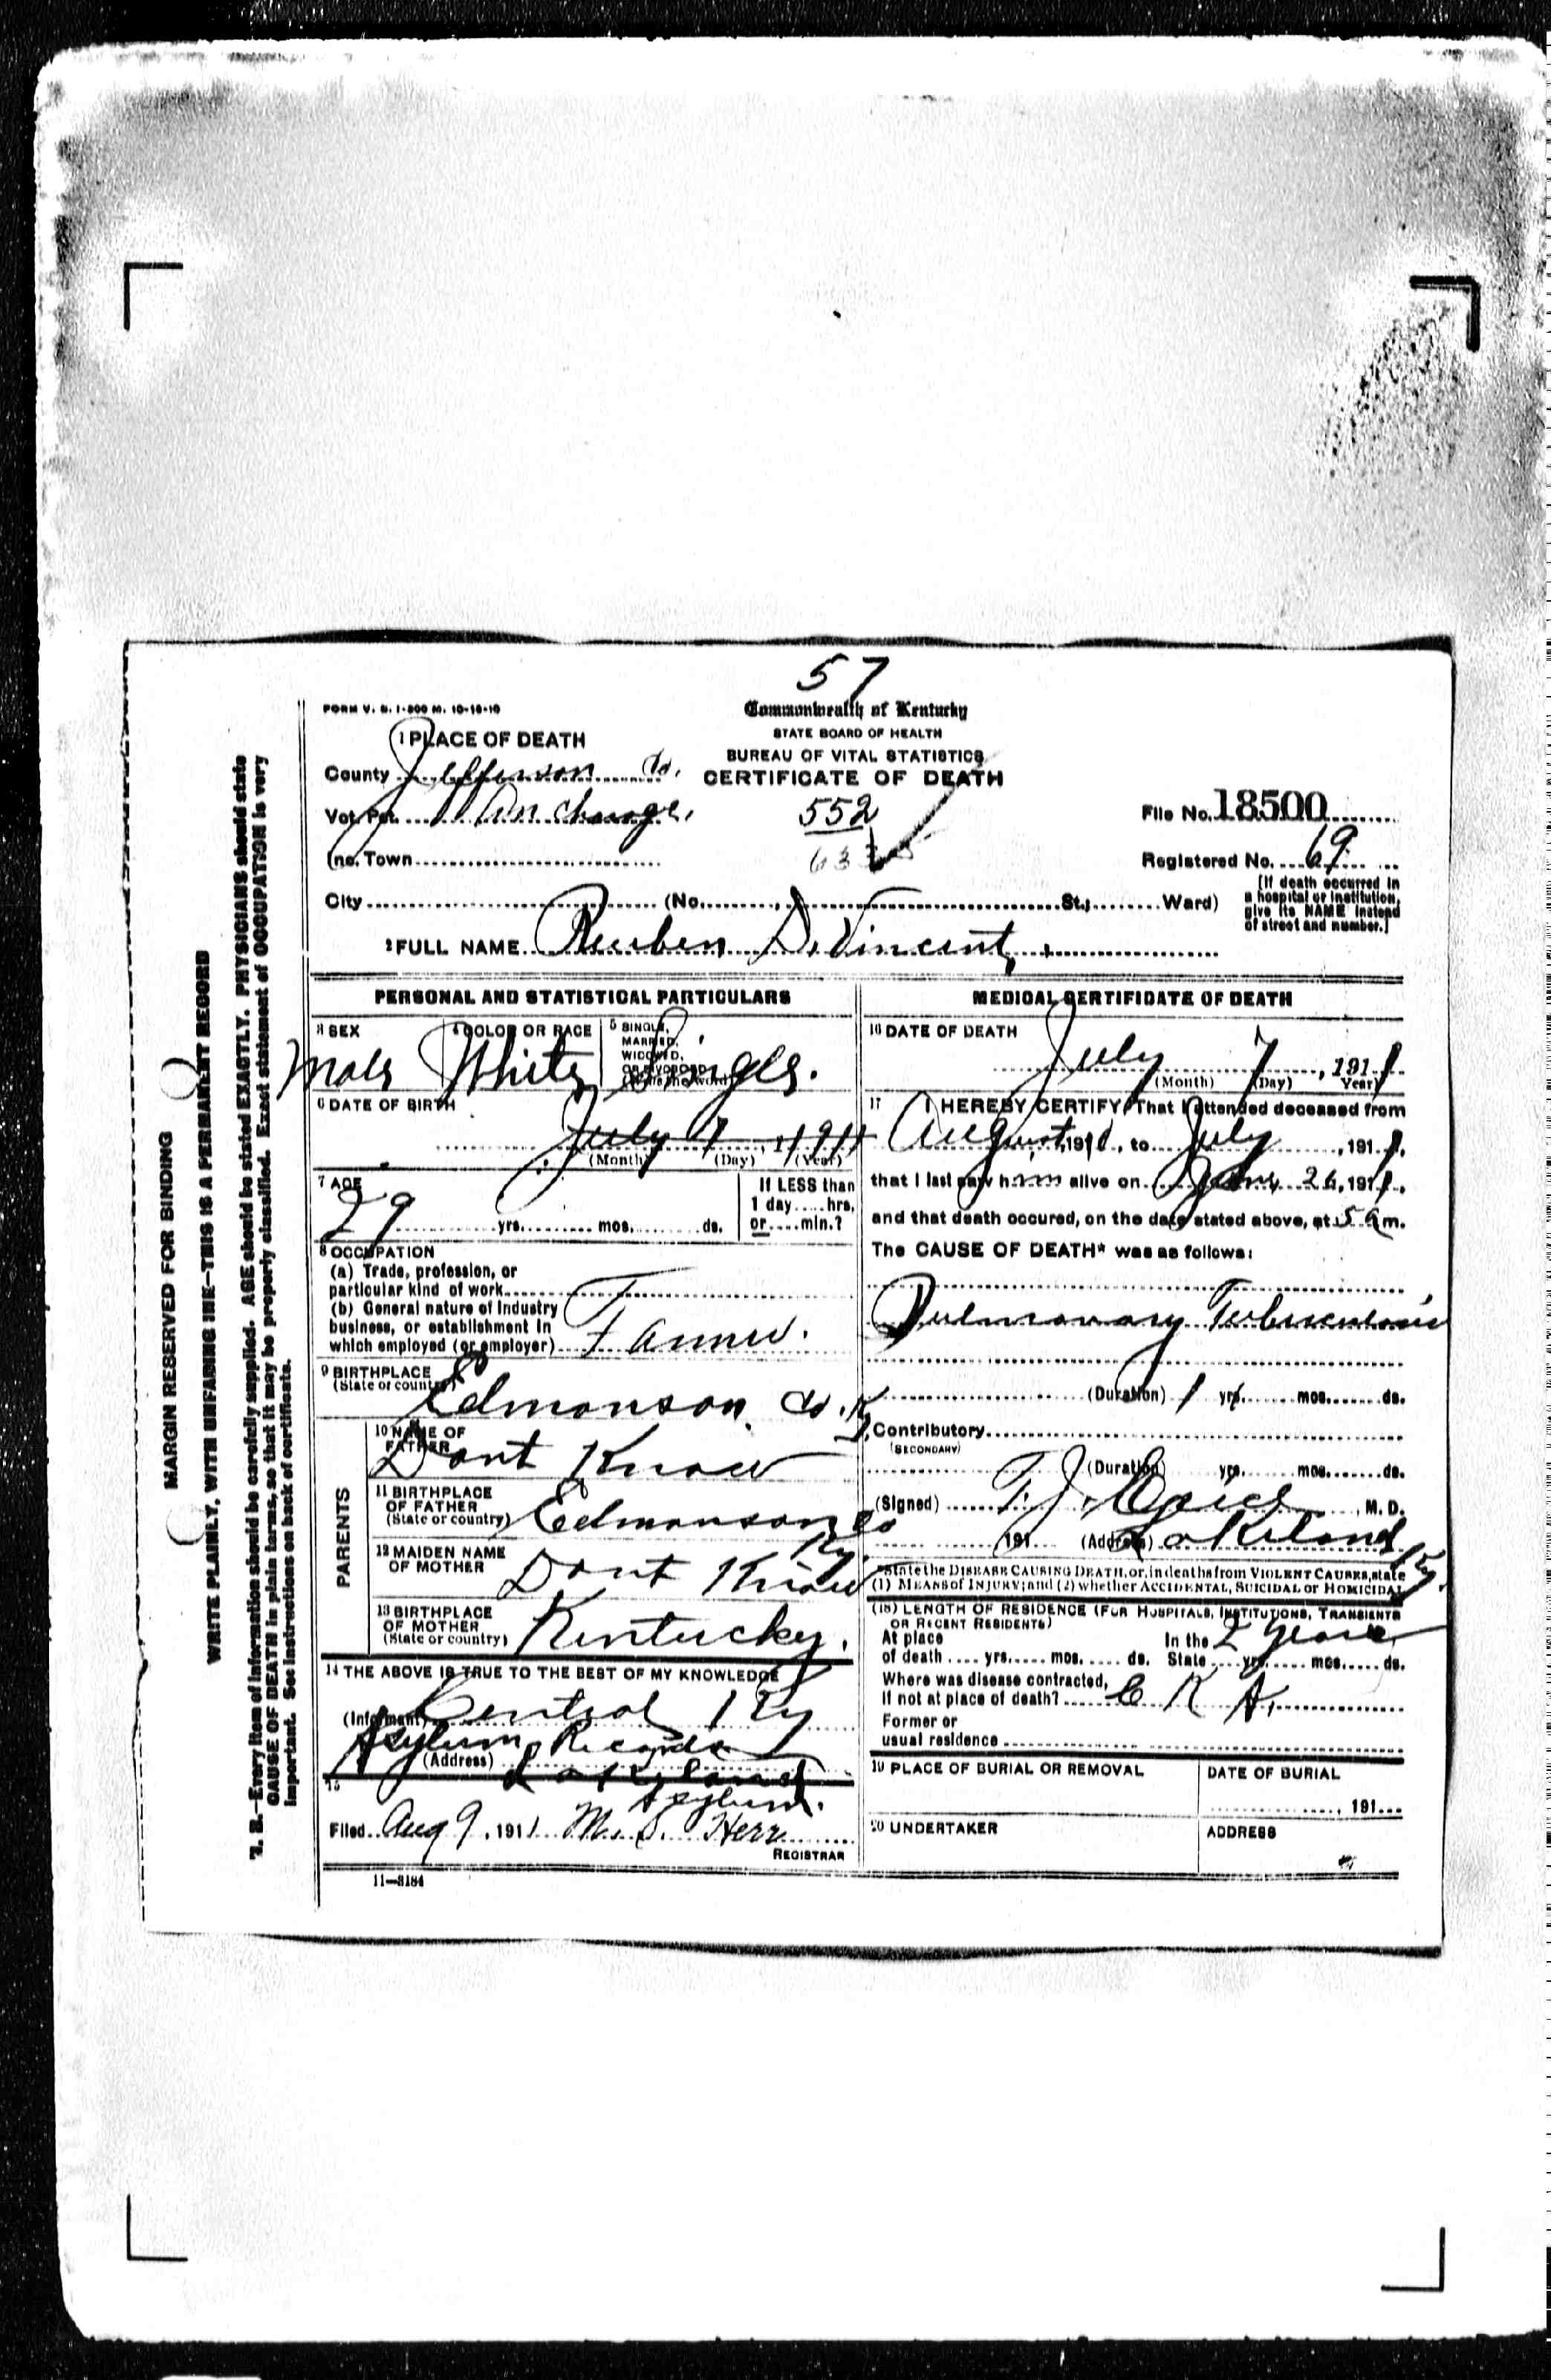 57
FORM V. S. 1-200 M. 10-18-10
Commonwealth of Kentucky
STATE BOARD OF HEALTH
BUREAU OF VITAL STATISTICS
CERTIFICATE OF DEATH
1 PLACE OF DEATH
County Jefferson Co.
Vot. Pct. Anchorage,
Inc. Town
City (No. St.; Ward)
552
File No. 18500
Registered No. 69
[If death occurred in
a hospital or institution,
give its NAME instead
of street and number.]
2 FULL NAME Reuben S. Vincent
PERSONAL AND STATISTICAL PARTICULARS
3 SEX
Male
4 COLOR OR RACE
White
5 SINGLE,
MARRIED,
WIDOWED,
OR DIVORCED
(Write the word)
Single.
6 DATE OF BIRTH
July 7, 1911
(Month) (Day) (Year)
7 AGE
29 yrs. mos. ds.
If LESS than
1 day hrs.
or min.?
8 OCCUPATION
(a) Trade, profession, or
particular kind of work
(b) General nature of industry
business, or establishment in
which employed (or employer) Farmer.
9 BIRTHPLACE
(State or country)
Edmonson Co. Ky
PARENTS
10 NAME OF
FATHER
Dont Know
11 BIRTHPLACE
OF FATHER
(State or country) Edmonson Co
Ky.
12 MAIDEN NAME
OF MOTHER Dont Know
13 BIRTHPLACE
OF MOTHER
(State or country) Kentucky.
14 THE ABOVE IS TRUE TO THE BEST OF MY KNOWLEDGE
(Informant) Central Ky
Asylum Records
(Address) Lakeland
Asylum.
15
Filed Aug 9, 1911 M. S. Herr
REGISTRAR
11-3184
MEDICAL CERTIFICATE OF DEATH
16 DATE OF DEATH
July 7, 1911
(Month) (Day) Year)
17 I HEREBY CERTIFY, That I attended deceased from
August, 1910, to July, 1911,
that I last saw him alive on 26, 1911,
and that death occured, on the date stated above, at 5 a m.
The CAUSE OF DEATH* was as follows:
Pulmonary Tuberculosis
(Duration) 1 yrs. mos. ds.
Contributory
(SECONDARY)
(Duration) yrs. mos. ds.
(Signed) T. J. , M. D.
191 (Address) Lakeland Ky.
*State the DISEASE CAUSING DEATH, or, in deaths from VIOLENT CAUSES, state
(1) MEANS of INJURY; and (2) whether ACCIDENTAL, SUICIDAL or HOMICIDAL
(18) LENGTH OF RESIDENCE (FOR HOSPITALS, INSTITUTIONS, TRANSIENTS
OR RECENT RESIDENTS)
At place In the 2 years
of death yrs. mos. ds. State yrs. mos. ds.
Where was disease contracted,
If not at place of death? C K A.
Former or
usual residence
19 PLACE OF BURIAL OR REMOVAL
DATE OF BURIAL
, 191
20 UNDERTAKER
ADDRESS
MARGIN RESERVED FOR BINDING
WRITE PLAINLY, WITH UNFADING INK—THIS IS A PERMANENT RECORD
N. B.—Every item of information should be carefully supplied. AGE should be stated EXACTLY. PHYSICIANS should state
CAUSE OF DEATH in plain terms, so that it may be properly classified. Exact statement of OCCUPATION is very
important. See instructions on back of certificate.